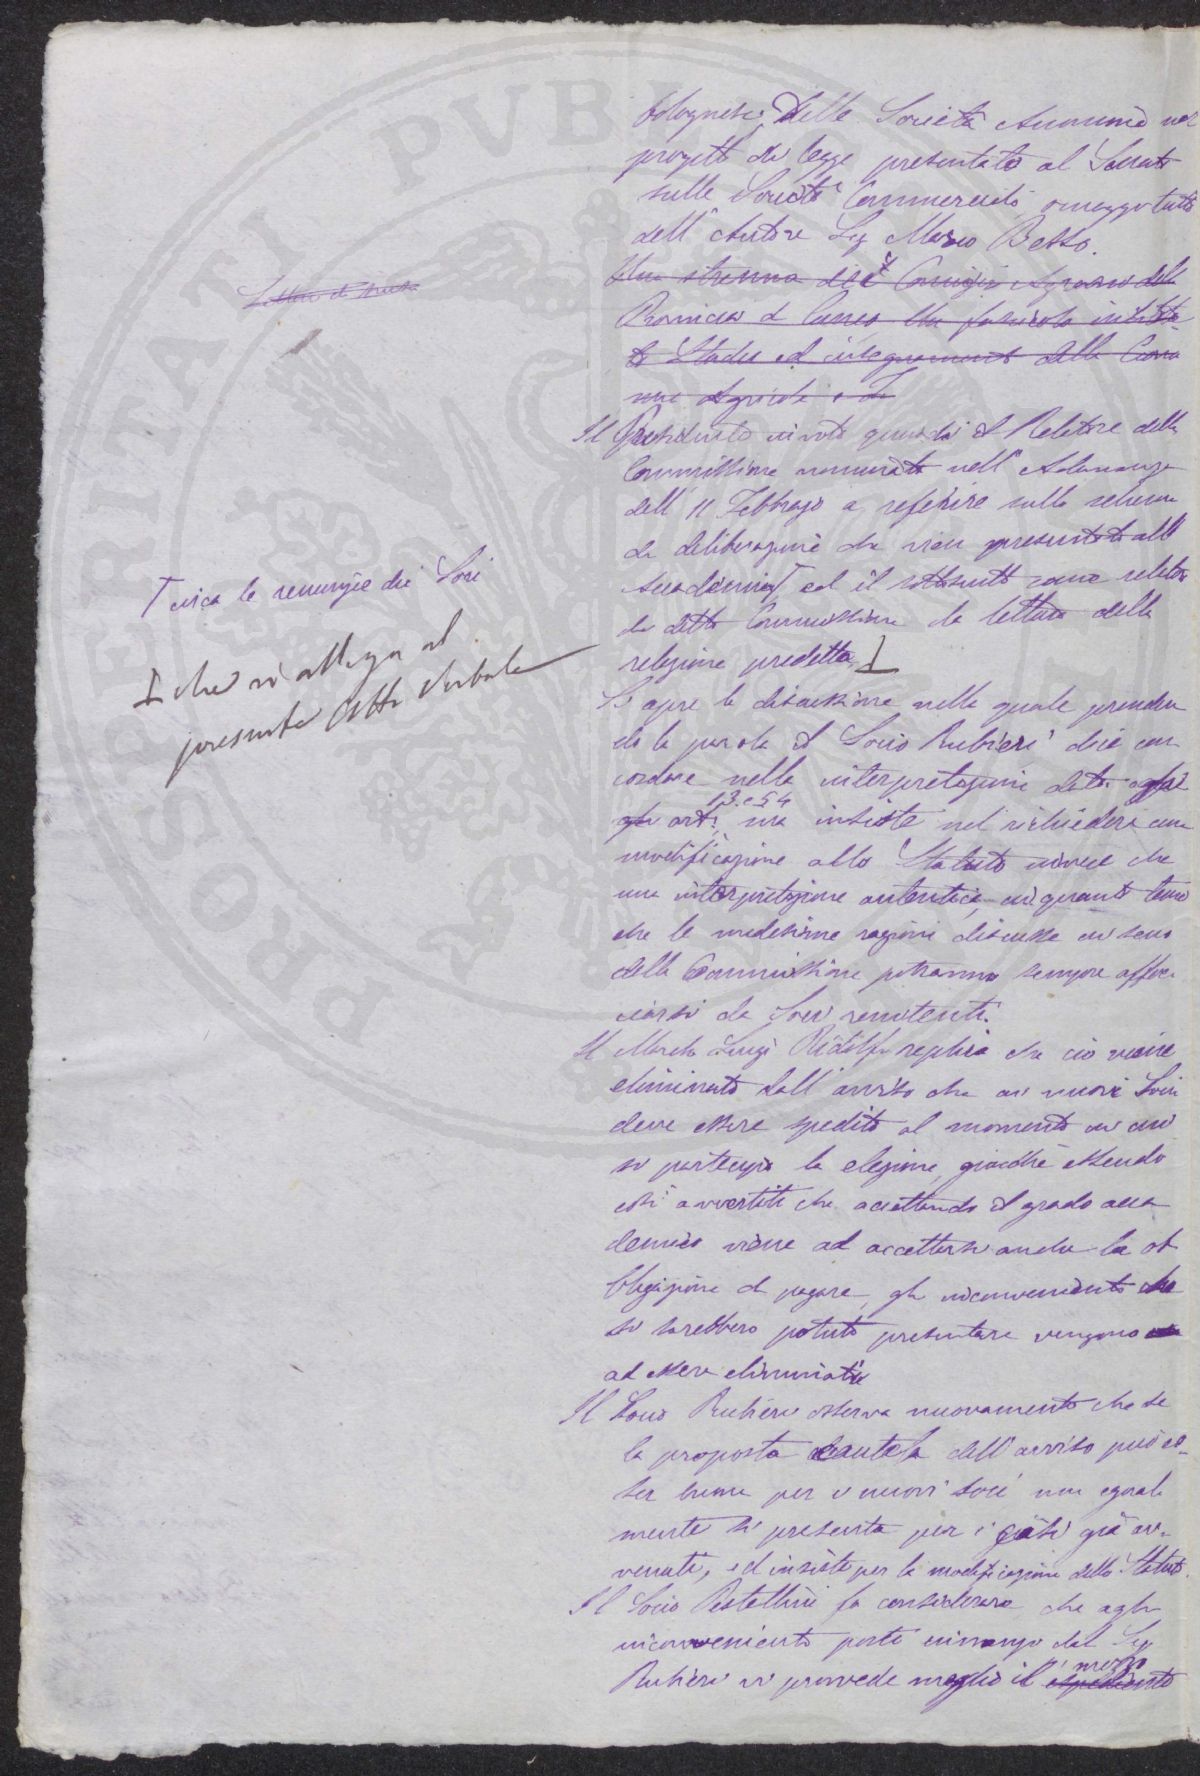 bolognesi, delle Società Anonime nel
progetto di legge presentato al Senato
sulle Società Commerciali, omaggio tutto
dell'Autore Sig Marco Besso.
Una strenna del Comizio Agrario della
Provincia di Cuneo Un fascicolo
Studi ed insegnamenti della
Agricole
Il Presidente invita quindi il Relatore della
Commissione nominata nell'Adunanza
dell'11 Febbrajo a referire sullo schema
di deliberazione che vien presentato all'
Accademia T ed il sottoscritto come relatore
di detta Commissione da lettura della
relazione predetta. I
T circa le renunzie dei Soci
I che si allega al
presente Atto Verbale
Si apre la discussione nella quale prenden
do la parola il Socio Rubieri dice con
cordare nella interpretazione data agli
art. 13. e 54 ma insiste nel richiedere una
modificazione allo Statuto invece che
una interpretazione autentica, in quanto teme
che le medesime ragioni discusse in seno
della Commissione potranno sempre affac
ciarsi da Soci renitenti.
Il March. Luigi Ridolfi replica che ciò viene
eliminato dall'avviso che ai nuovi Soci
deve essere spedito al momento in cui
si partecipa la elezione, giacchè essendo
così avvertiti che accettando il grado acca
demico viene ad accettarsi anche la ob
bligazione di pagare, gli inconvenienti che
si sarebbero potuti presentare vengono
ad essere eliminati
Il Socio Rubieri osserva nuovamente che se
la proposta cautela dell'avviso può es-
ser buona per i nuovi Soci non egual
mente si presenta per i casi già av-
venuti, ed insiste per la modificazione dello Statuto.
Il Socio Pestellini fa considerare che agli
inconvenienti posti innanzi dal Sig
Rubieri si provvede meglio il mezzo espediente